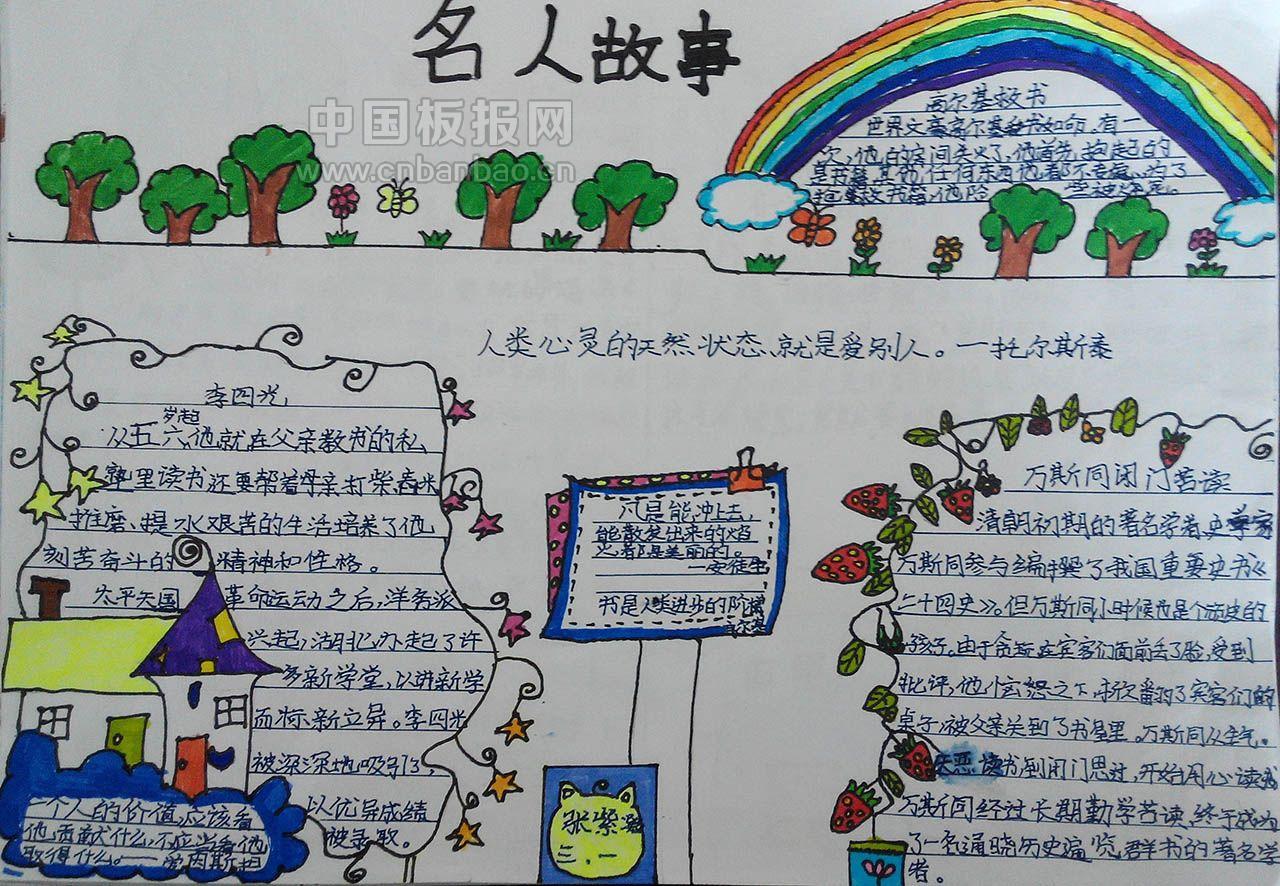 名人故事
中国板报网
www.cnbanbao.cn
高尔基救书
世界文豪高尔基爱书如命,有一
次,他的房间失火了,他首先抱起的
是书籍,其他任何东西他都不考虑,为了
抢救书籍,他险
些被烧死。
人类心灵的天然状态、就是爱别人。—托尔斯泰
李四光,
从五六岁起他就在父亲教书的私
塾里读书还要帮着母亲打柴、舂米
推磨、提水艰苦的生活培养了他
刻苦奋斗的精神和性格。
太平天国革命运动之后,洋务派
兴起,湖北办起了许
多新学堂,以讲新学
而标新立异。李四光
被深深地吸引了,
以优异成绩
被录取。
一个人的价值,应该看
他贡献什么,不应当看他
取得什么。——爱因斯坦
凡是能冲上去,
能散发出来的焰
火,都是美丽的。
—安徒生
书是人类进步的阶梯
高尔基
张紫
三.一
万斯同闭门苦读
清朝初期的著名学者、史学家
万斯同参与编撰了我国重要史书《
二十四史》。但万斯同小时候也是个顽皮的
孩子。由于贪玩在宾客们面前丢了脸,受到
批评,他恼怒之下,掀翻了宾客们的
桌子,被父亲关到了书屋里。万斯同从生气、
厌恶读书,到闭门思过,开始用心读书
万斯同经过长期勤学苦读,终于成为
了一名通晓历史遍览群书的著名学
者。